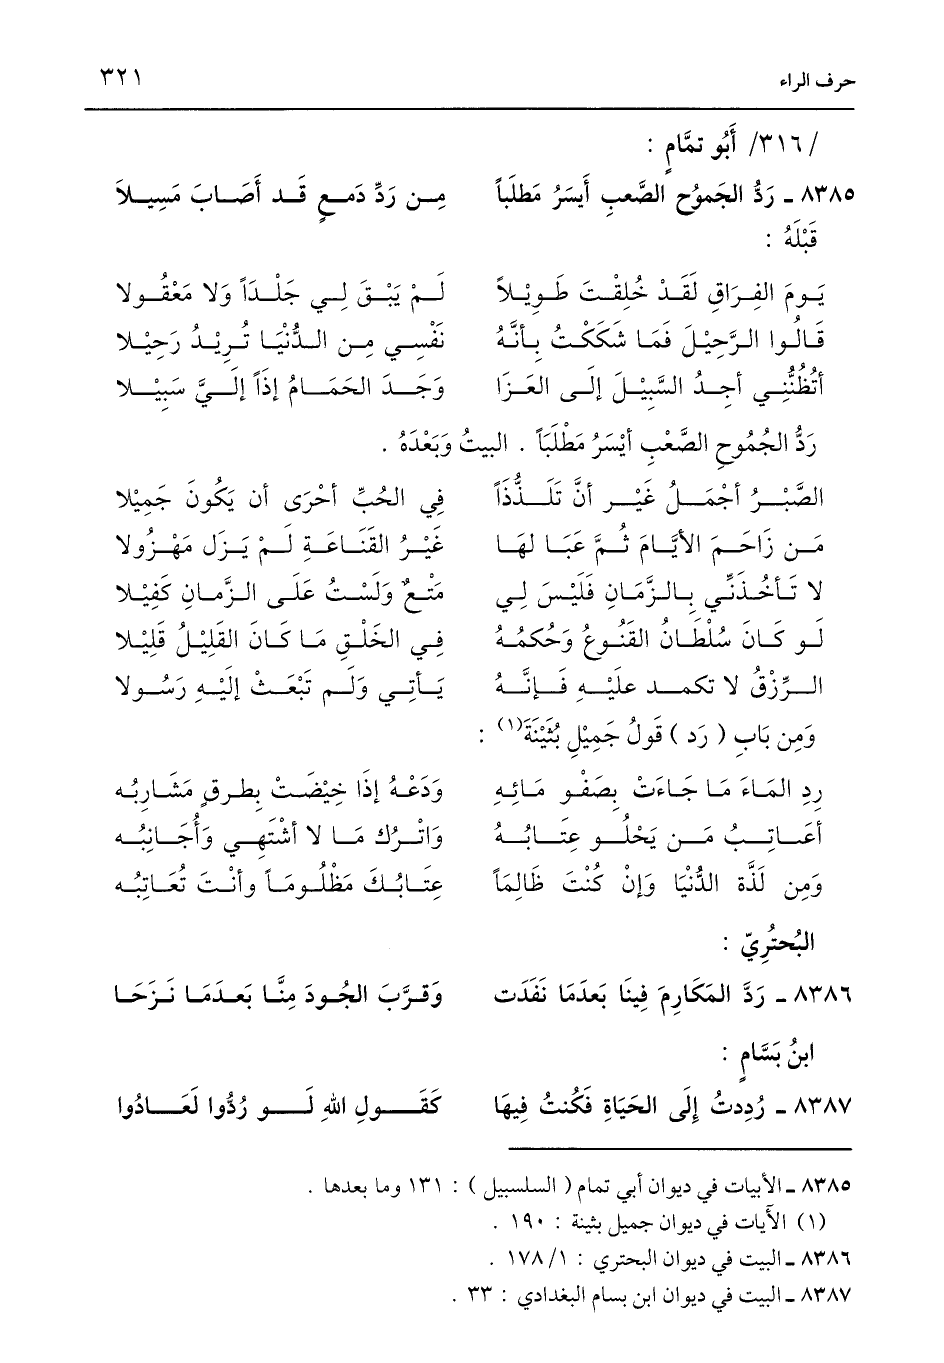 حرف الراء ٣٢١
/٣١٦/ أَبُو تمَّامٍ :
٨٣٨٥ ـ رَدُّ الجَموُحِ الصَّعبِ أَيسَرُ مَطلَباً مِـن رَدِّ دَمـعٍ قَـد أَصَـابَ مَسِيـلاَ
قَبْلَهُ :
يَـومَ الفِـرَاقِ لَقَـدْ خُلِقْـتَ طَـوِيْـلاً لَـمْ يَبْـقَ لِـي جَلْـدَاً وَلا مَعْقُـولا
قَـالُـوا الـرَّحِيْـلَ فَمَـا شَكَكْـتُ بِـأنَّـهُ نَفْسِـي مِـن الـدُّنْيَـا تُـرِيْـدُ رَحِيْـلا
أتُظُنُّنِـي أجِـدُ السَّبِيْـلَ إلَـى العَـزَا وَجَـدَ الحَمَـامُ إذَاً إلَـيَّ سَبِيْـلا
رَدُّ الجُمُوحِ الصَّعْبِ أيْسَرُ مَطْلَبَاً . البَيتُ وَبَعْدَهُ .
الصَّبْـرُ أجْمَـلُ غَيْـر أنَّ تَلَـذُّذَاً فِي الحُبِّ أحْرَى أن يَكُونَ جَمِيْلا
مَـن زَاحَـمَ الأيَّـامَ ثُـمَّ عَبَـا لهَـا غَيْـرُ القَنَـاعَـةِ لَـمْ يَـزَل مَهْـزُولا
لا تَـأخُـذَنِّـي بِـالـزَّمَـانِ فَلَيْـسَ لِـي مَتْـعٌ وَلَسْـتُ عَلَـى الـزَّمـانِ كَفِيْـلا
لَـو كَـانَ سُلْطَـانُ القُنُـوعُ وَحُكمُـهُ فِـي الخَلْـقِ مَـا كَـانَ القَلِيْـلُ قَلِيْـلا
الـرِّزْقُ لا تكمـد عليْـهِ فَـإنَّـهُ يَـأتِـي وَلَـم تَبْعَـثْ إلَيْـهِ رَسُـولا
وَمِن بَابِ ( رَد ) قَولُ جَمِيْلِ بُثيْنَةَ(١) :
رِدِ المَـاءَ مَـا جَـاءَتْ بِصَفْـوِ مَـائِـهِ وَدَعْـهُ إذَا خِيْضَـتْ بِطـرقٍ مَشَـارِبُـه
أعَـاتِـبُ مَـن يَحْلُـو عِتَـابُـهُ وَاتْـرُكْ مَـا لا أشْتَهِـي وَأُجَـانِبُـه
وَمِن لَذَّة الدُّنْيَا وَإنْ كُنْتَ ظَالِمَاً عِتَـابُـكَ مَظْلُـومَـاً وأنْـتَ تُعَـاتِبُـه
البُحتُرِيّ :
٨٣٨٦ ـ رَدَّ المَكَارِمَ فِينَا بَعدَمَا نَفَدَت وَقـرَّبَ الجُـودَ مِنَّـا بَعـدَمَـا نَـزَحَـا
ابنُ بَسَّامٍ :
٨٣٨٧ ـ رُدِدتُ إلَى الحَيَاةِ فَكُنتُ فِيهَا كَقَـولِ اللهِ لَـو رُدُّوا لَعَـادُوا
٨٣٨٥ ـ الأبيات في ديوان أبي تمام ( السلسبيل ) : ١٣١ وما بعدها .
(١) الأَيات في ديوان جميل بثينة : ١٩٠ .
٨٣٨٦ ـ البيت في ديوان البحتري : ١/ ١٧٨ .
٨٣٨٧ ـ البيت في ديوان ابن بسام البغدادي : ٣٣ .